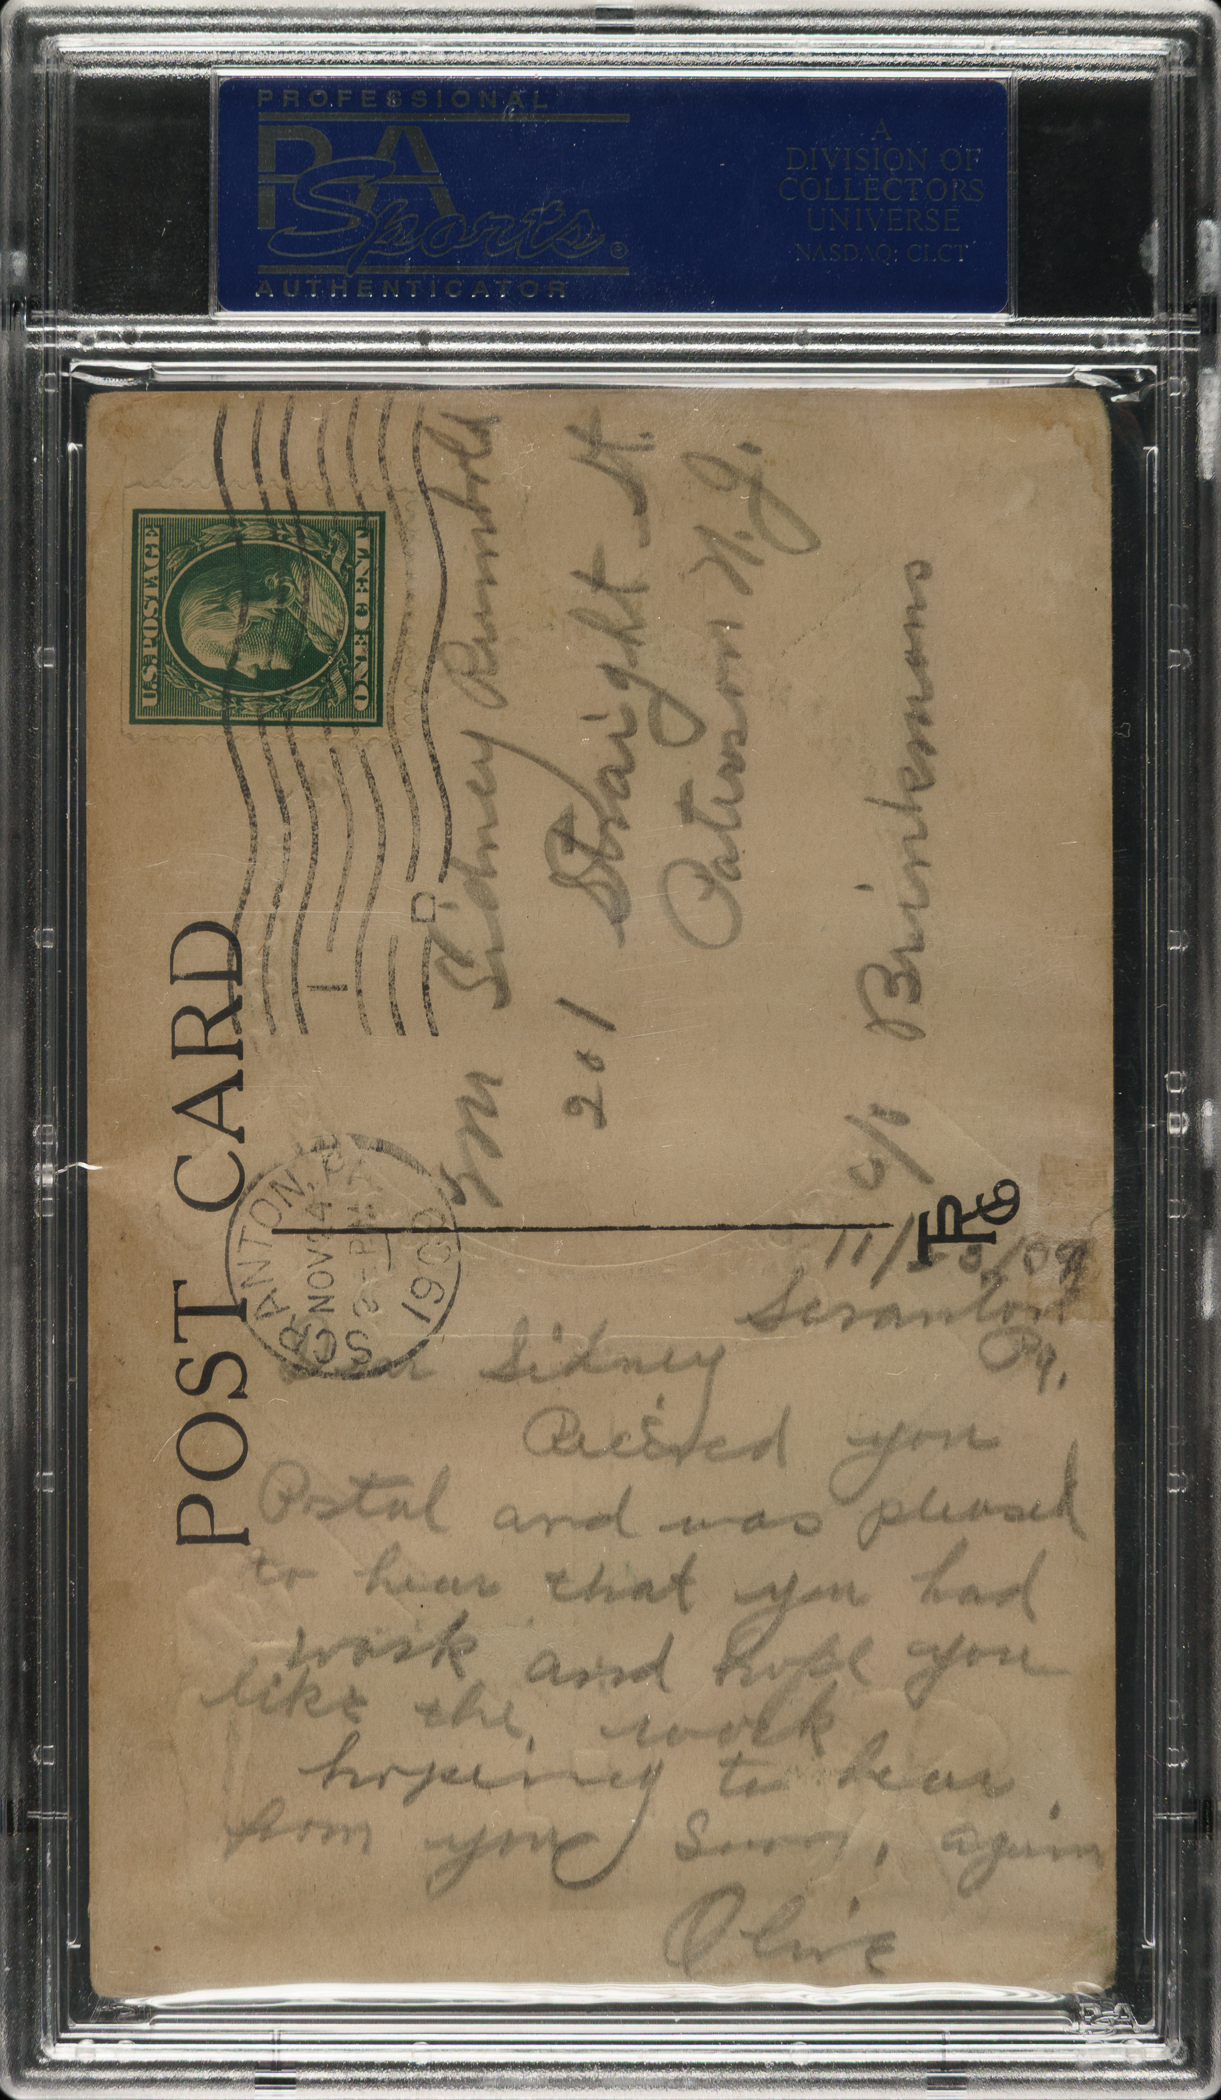 PROFESSIONAL
PSA
Sports ®
AUTHENTICATOR
A
DIVISION OF
COLLECTORS
UNIVERSE
NASDAQ: CLCT
POST CARD
U.S. POSTAGE
ONE CENT
SCRANTON, PA
NOV 24
8 - PM
1909
1 D
Mr Sidney Rumbold
201 Straight St.
Paterson N.J.
c/o Brinkmans
TRCo
11/23/09
Scranton
Pa.
Dear Sidney
Recieved you
Postal and was pleased
to hear that you had
work and hope you
like the work
hopeing to hear
from you Soon, again
Olive
PSA